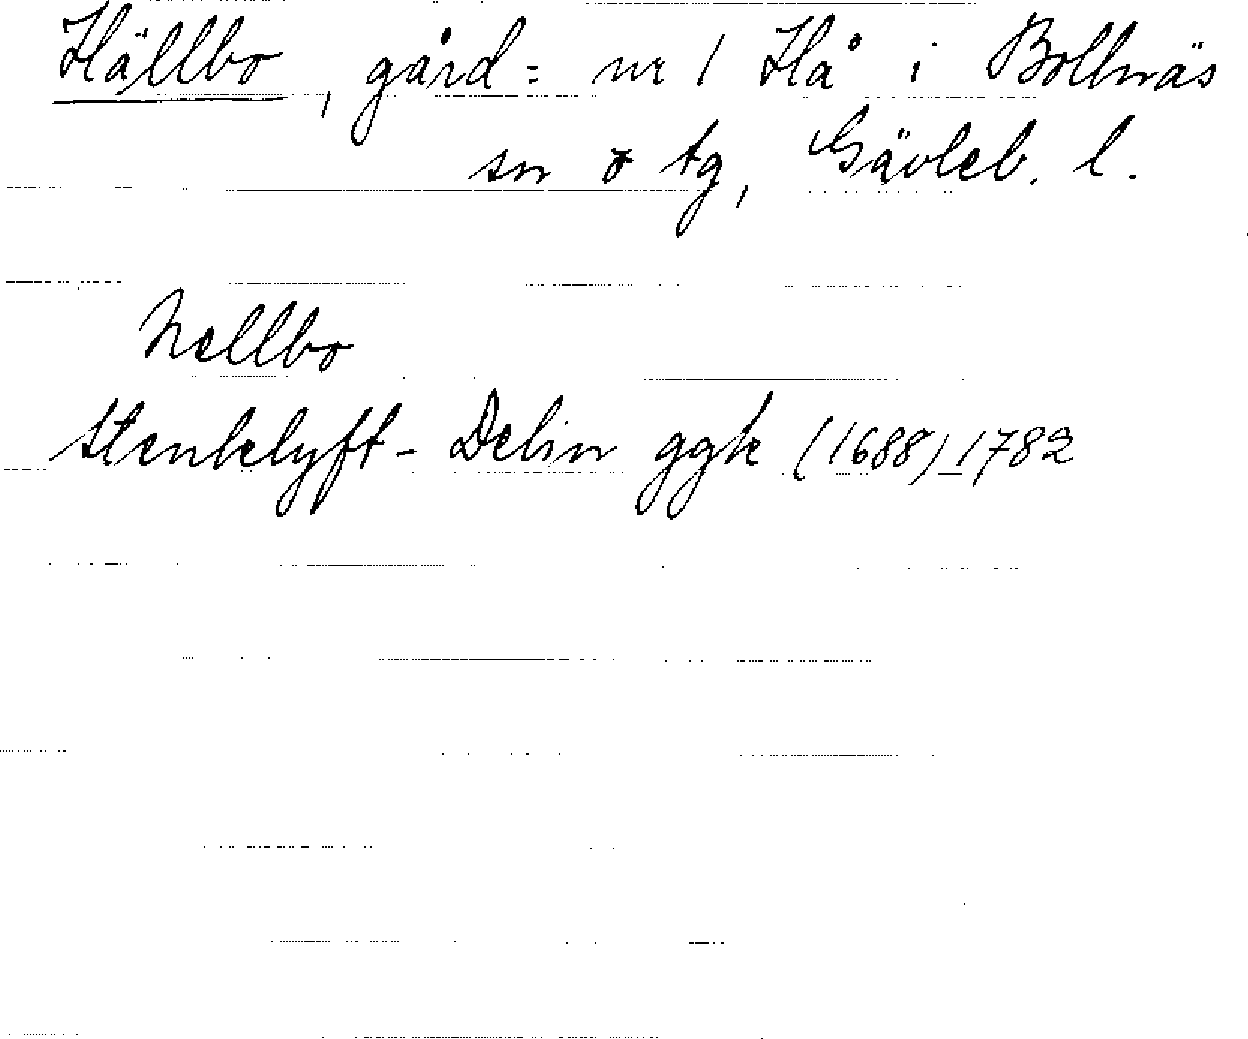 Hällbo, gård = nr 1 Hå i Bollnäs
sn o tg, Gävleb. l.
Hellbo
Stenklyft - Delin ggk (1688) 1782